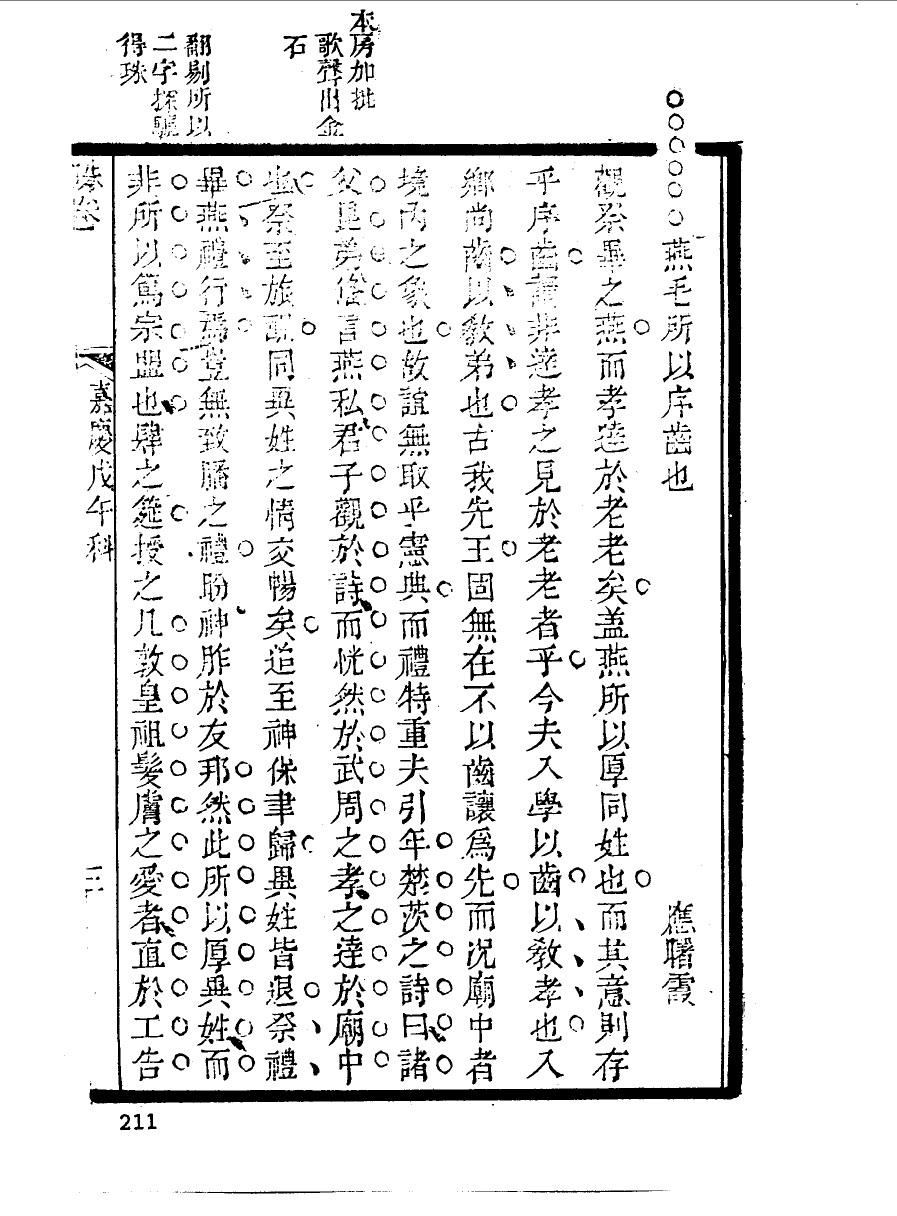 本房加批
歌聲出金
石
翻剔所以
二字探驪
得珠
燕毛所以序齒也 應曙霞
觀祭畢之燕而孝達於老老矣盖燕所以厚同姓也而其意則存
乎序齒謂非達孝之見於老老者乎今夫入學以齒以敎孝也入
鄉尚齒以敎弟也古我先王固無在不以齒讓爲先而况廟中者
境內之象也故誼無取乎憲典而禮特重夫引年楚茨之詩曰諸
父兄弟俻言燕私君子觀於詩而恍然於武周之孝之達於廟中
也祭至旅酬同異姓之情交暢矣迨至神保聿歸異姓皆退祭禮
畢燕禮行焉豈無致膰之禮貽神胙於友邦然此所以厚異姓而
非所以篤宗盟也肆之筵授之几敦皇祖髮膚之愛者直於工告
硃卷
嘉慶戊午科
二十
211